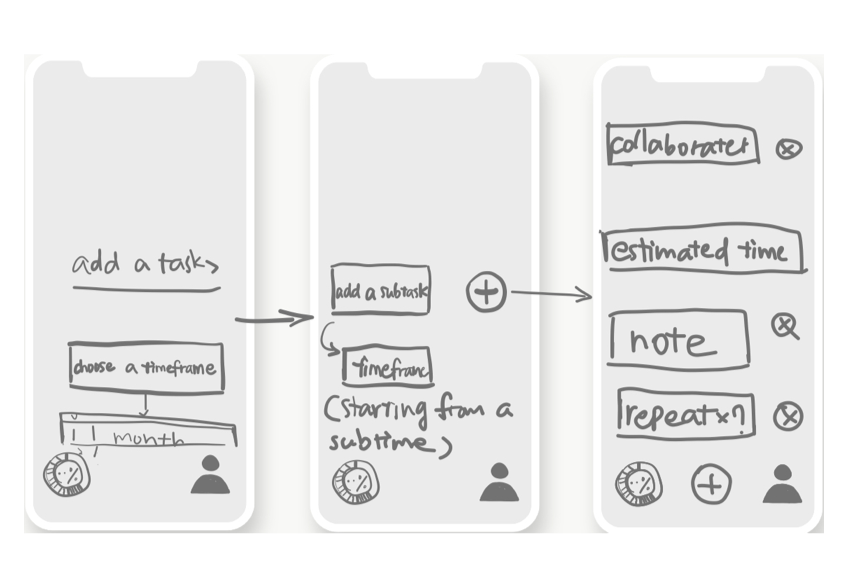 add a task>
choose a timeframe
month
add a subtask
timeframe
(starting from a
subtime)
collaborater
estimated time
note
repeatx?